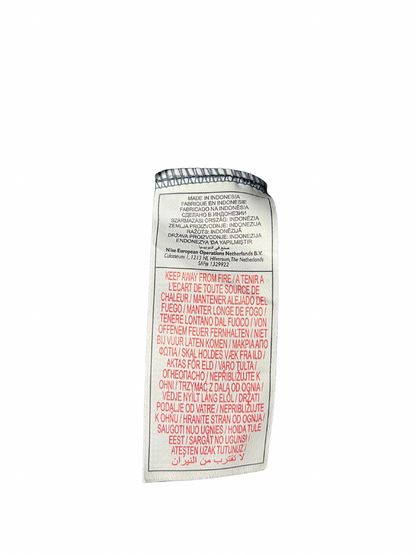 MADE IN INDONESIA
FABRIQUE EN INDONESIE
FABRICADO NA INDONÉSIA
СДЕЛАНО В ИНДОНЕЗИИ
SZÁRMAZÁSI ORSZÁG: INDONÉZIA
ZEMLJA PROIZVODNJE: INDONEZIJA
RAŽOTS: INDONĒZIJĀ
DRŽAVA PROIZVODNJE: INDONEZIJA
ENDONEZYA'DA YAPILMIŞTIR
صنع في اندونيسيا
Nike European Operations Netherlands B.V.
Colosseum 1, 1213 NL Hilversum, The Netherlands
SW# 1329922
KEEP AWAY FROM FIRE / A TENIR A
L'ECART DE TOUTE SOURCE DE
CHALEUR / MANTENER ALEJADO DEL
FUEGO / MANTER LONGE DE FOGO /
TENERE LONTANO DAL FUOCO / VON
OFFENEM FEUER FERNHALTEN / NIET
BIJ VUUR LATEN KOMEN / ΜΑΚΡΙΑ ΑΠΟ
ΦΩΤΙΑ / SKAL HOLDES VÆK FRA ILD /
AKTAS FÖR ELD / VARO TULTA /
ОГНЕОПАСНО / NEPŘIBLIŽUJTE K
OHNI / TRZYMAĆ Z DALA OD OGNIA /
VÉDJE NYÍLT LÁNG ELŐL / DRŽATI
PODALJE OD VATRE / NEPRIBLIŽUJTE
K OHŇU / HRANITE STRAN OD OGNJA /
SAUGOTI NUO UGNIES / HOIDA TULE
EEST / SARGĀT NO UGUNS! /
ATEŞTEN UZAK TUTUNUZ /
لا تقترب من النيران